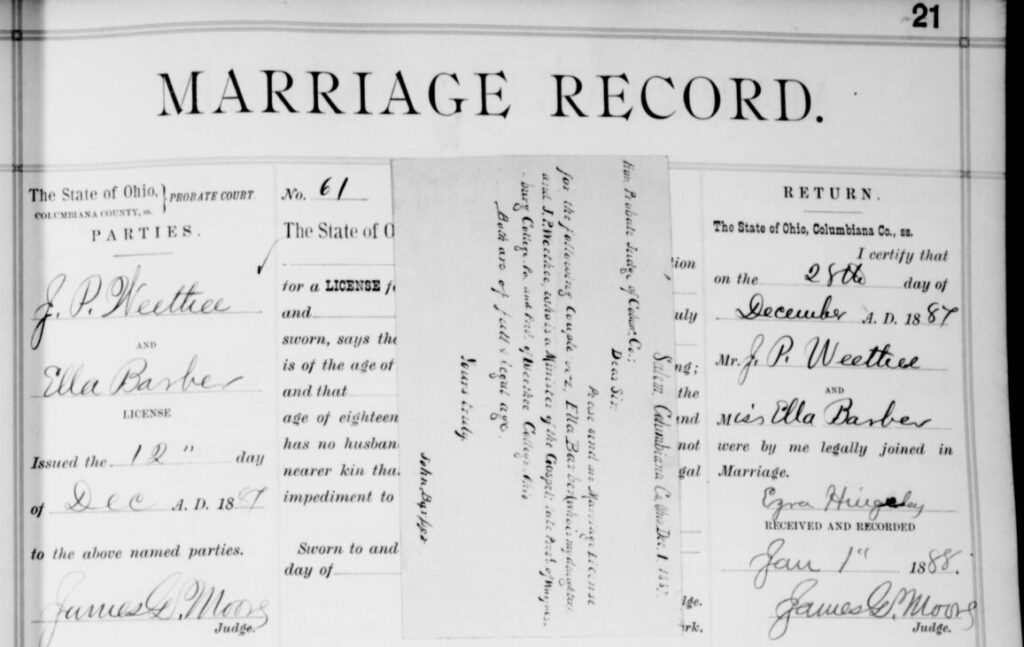 21
MARRIAGE RECORD.
The State of Ohio, } PROBATE COURT
COLUMBIANA COUNTY, ss.
PARTIES.
J. P. Weethee
AND
Ella Barber
LICENSE
Issued the 12" day
of Dec A. D. 1887
to the above named parties.
James G. Moore
Judge.
No. 61
The State of O
for a LICENSE f
and
sworn, says the
is of the age of
and that
age of eighteen
has no husban
nearer kin tha
impediment to
Sworn to and
day of
Salem, Columbiana Co. Dec. 1, 1887.
Hon. Probate Judge of Colum. Co.:
Dear Sir
Please send me Marriage License
for the following couple viz. Ella Barber who is my daughter
and J. P. Weethee, who is a Minister of the Gospel; late Prest. of Waynes-
burg College Pa. and Prest. of Weethee College, Ohio.
Both are of full & legal age.
Yours truly
John Barber
tion
uly
ng;
the
and
not
gal
dge.
rk.
RETURN.
The State of Ohio, Columbiana Co., ss.
I certify that
on the 28th day of
December A. D. 1887
Mr. J. P. Weethee
AND
Miss Ella Barber
were by me legally joined in
Marriage.
Ezra Hingeley
RECEIVED AND RECORDED
Jan 1" 1888.
James G. Moore
Judge.